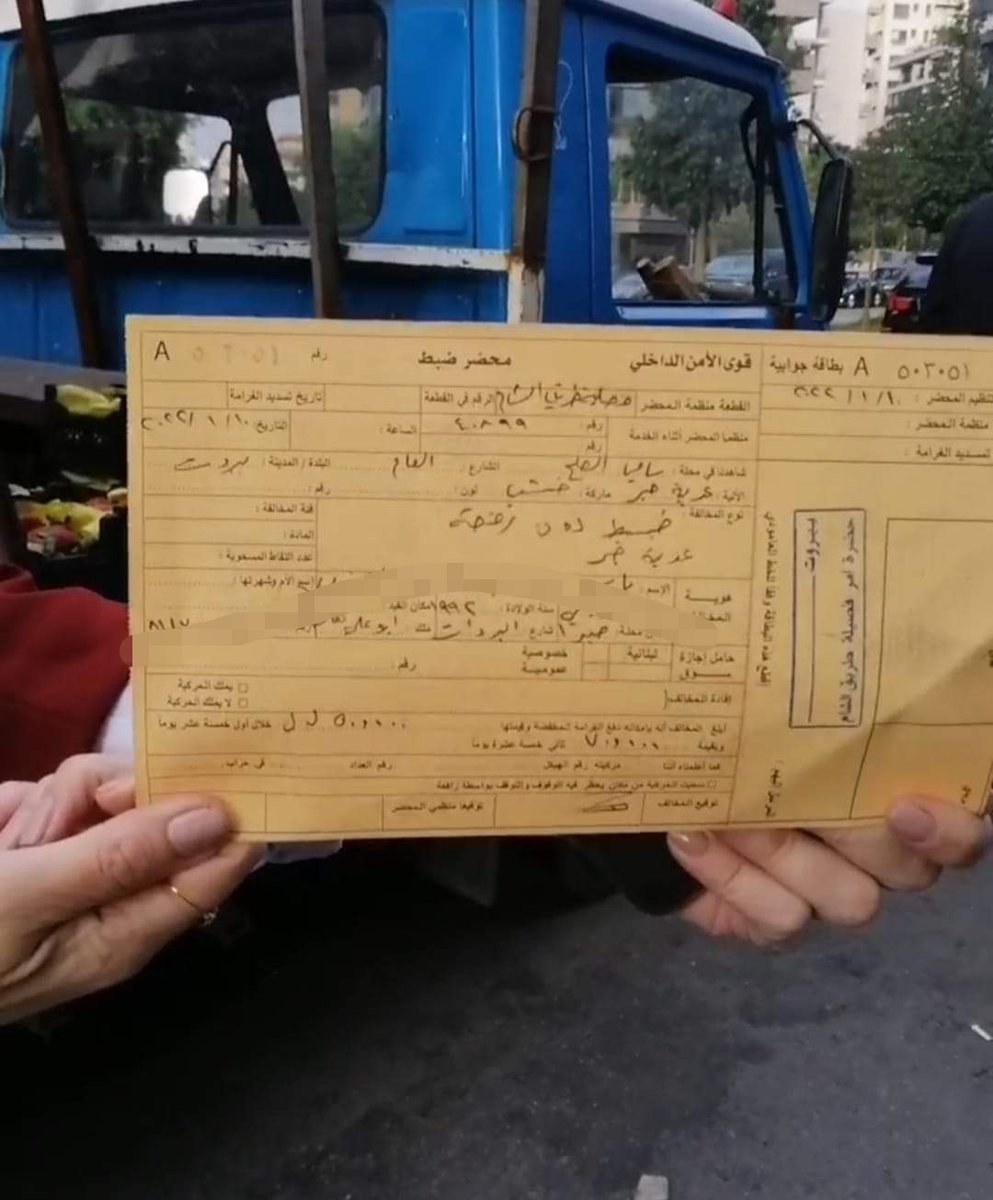 بطاقة جوابية A ٥٠٣٠٥١
تنظيم المحضر : ٢٠٢٢/١/١٠
منظمة المحضر :
تسديد الغرامة :
قوى الأمن الداخلي محضر ضبط رقم ٥٠٣٠٥١ A
القطعة منظمة المحضر الرقم في القطعة تاريخ تسديد الغرامة
منظما المحضر أثناء الخدمة رقم : ٤٠٨٩٩ الساعة : التاريخ: ٢٠٢٢/١/١٠
رقم
شاهدنا في محلة : ساميا الصلح الشارع : العام البلدة / المدينة : بيروت
الآلية : عربة ماركة : خشب لون : رقم :
نوع المخالفة : ضبط
عربة خضر
فئة المخالفة :
المادة :
عدد النقاط المسحوبة :
هوية الاسم : اسم الأم وشهرتها :
سنة الولادة : ١٩٩٢ مكان القيد
محلة: صبرا شارع ملك : أبو علي
حامل إجازة سوق لبنانية خصوصية
عمومية رقم :
إفادة المخالف:
يملك المركبة
لا يملك المركبة
أبلغ المخالف أنه بإمكانه دفع الغرامة المخفضة وقيمتها ٥٠٠٠٠ ل ل خلال أول خمسة عشر يوما
وبقيمة ٧٠٠٠٠ ثاني خمسة عشرة يوما
كما أعلمناه أننا مركبته رقم الهيكل رقم العداد في مرآب
سحبت المركبة من مكان يحظر فيه الوقوف والتوقف بواسطة رافعة
توقيع المخالف توقيعا منظمي المحضر
إقطع هذه البطاقة وفقا للخط العامودي
حضرة آمر فصيلة طريق الشام
بيروت